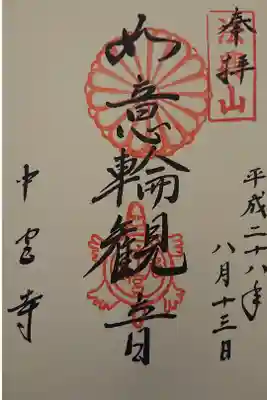 奉拝
法興山
平成二十八年
八月十三日
如意輪観音
中宮寺